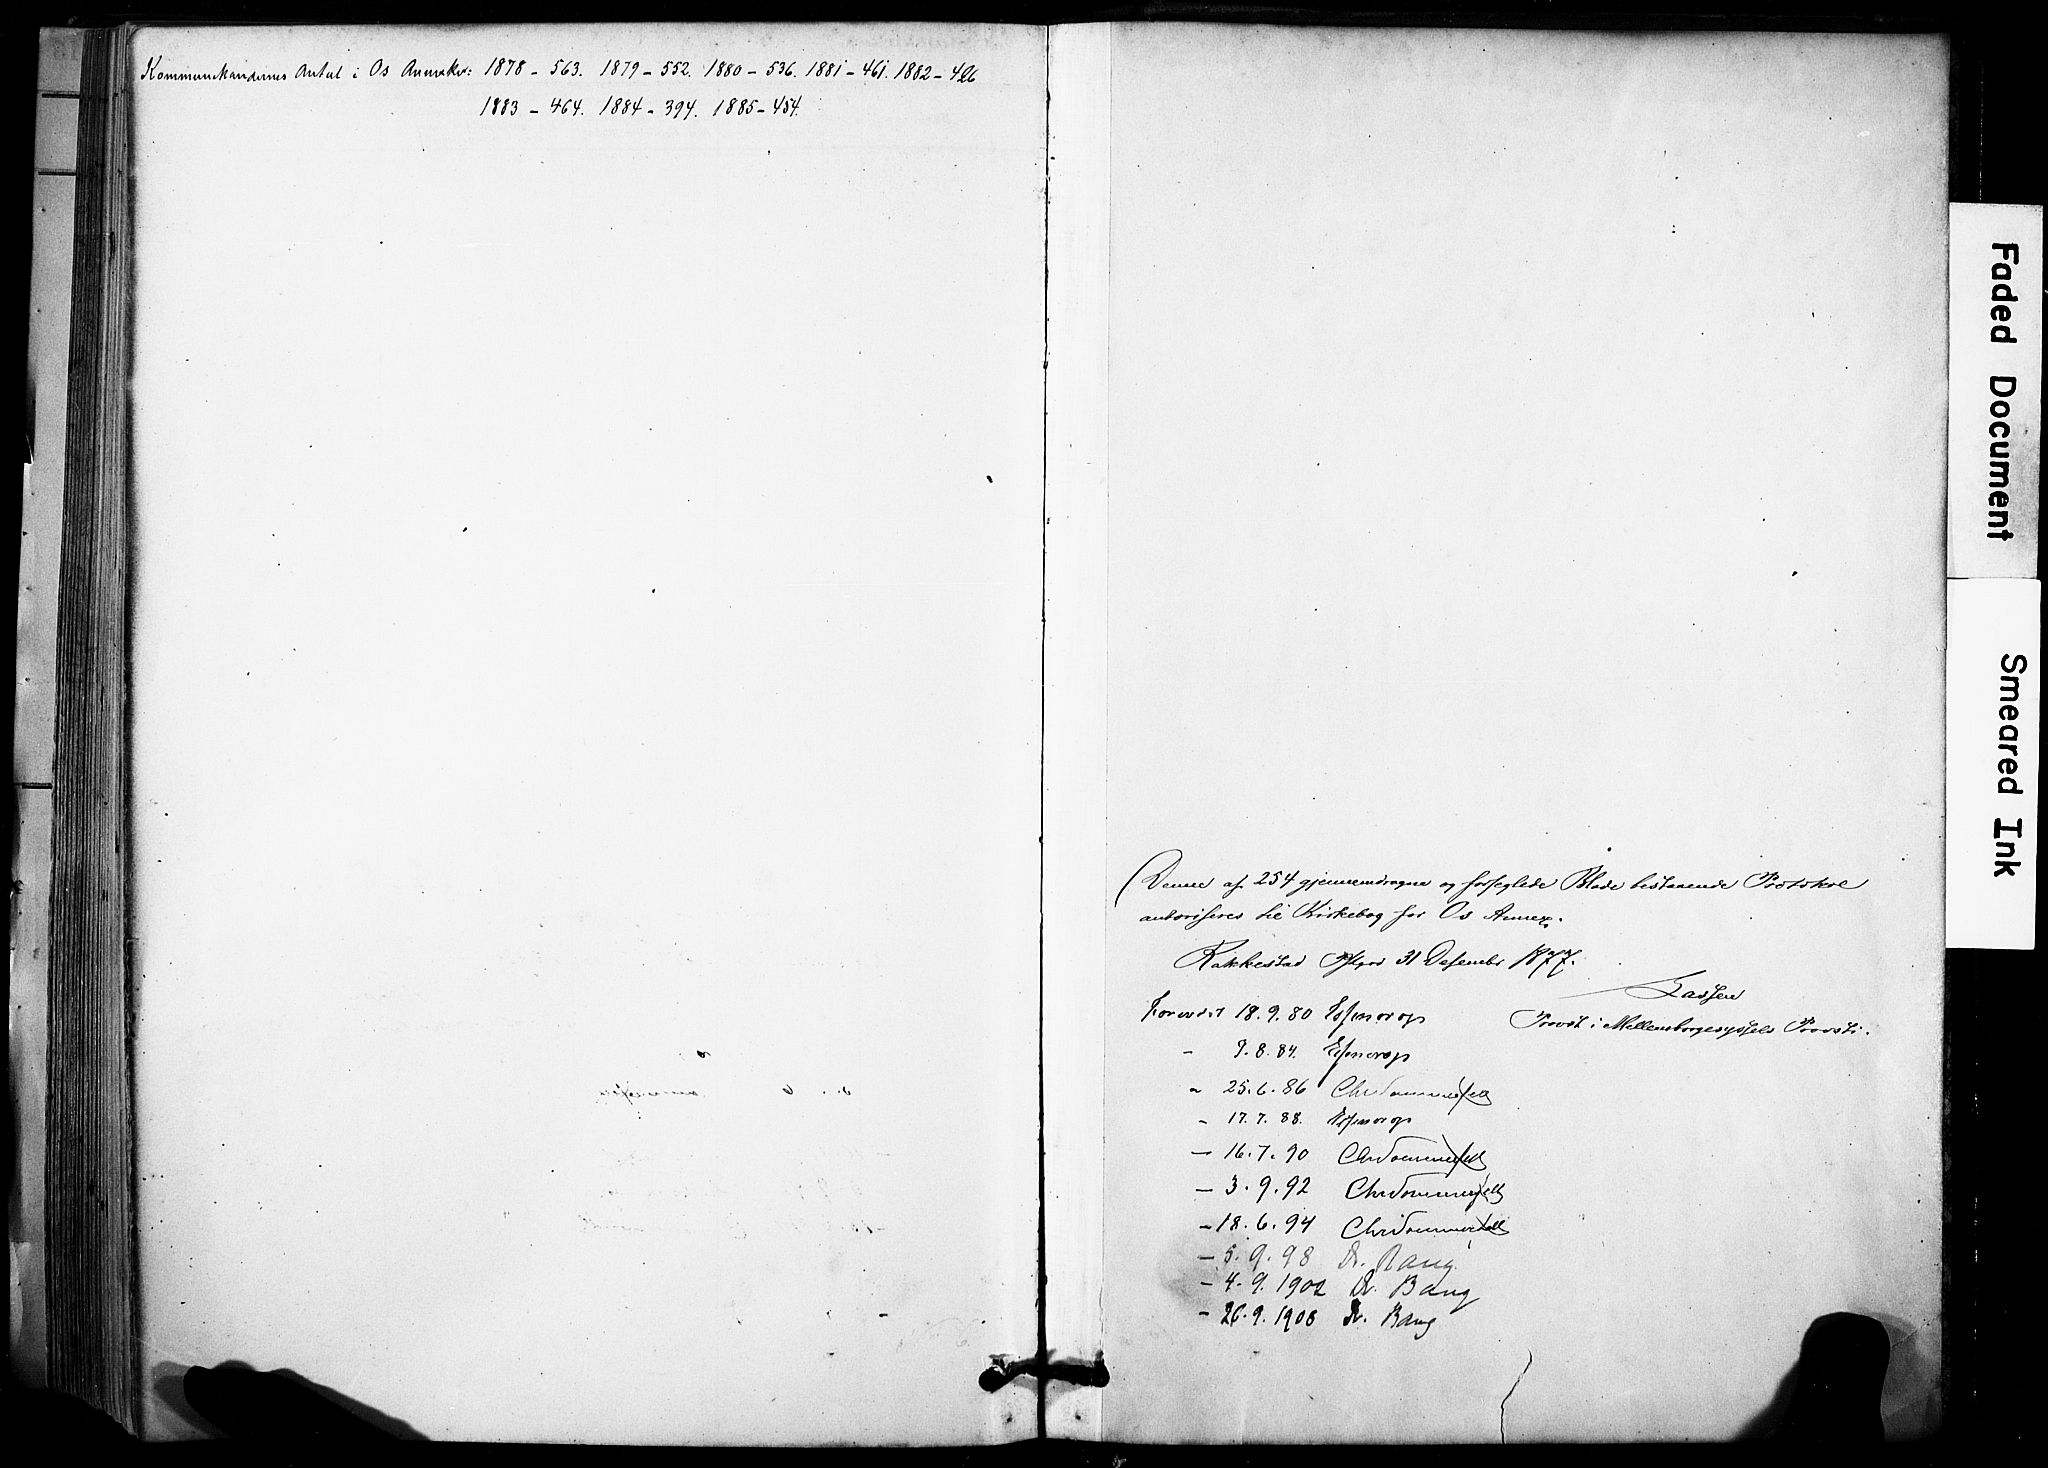 Kommunikandernes Antal i Os Annexkir: 1878 - 563. 1879 - 552. 1880 - 536. 1881 - 461. 1882 - 426
1883 - 464. 1884 - 394. 1885 - 454.
Denne af 254 gjennemdragne og forseglede Blade bestaaende Protokol
autoriseres til Kirkebog for Os Annex.
Rakkestad Pstgrd 31 Desember 1877.
Lassen
Provst i Mellemborgesyssels Provsti.
Forevist 18.9.80 Essendrop
- 7.8.84. Essendrop
- 25.6.86 Chr Sommerfelt
- 17.7.88. Essendrop
- 16.7.90 Chr Sommerfelt
- 3.9.92 Chr Sommerfelt
- 18.6.94 Chr Sommerfelt
- 5.9.98 Dr. Bang
- 4.9.1902 Dr. Bang
- 26.9.1908 Dr. Bang
Faded Document
Smeared Ink